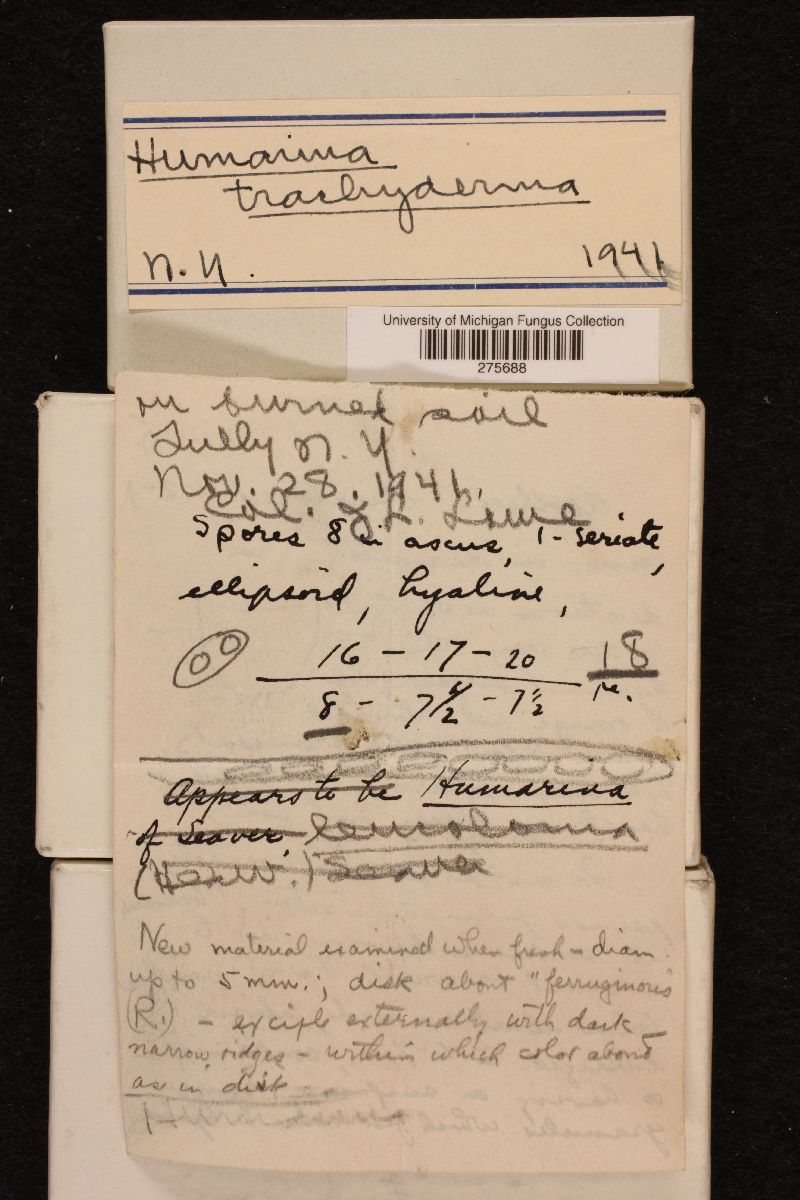 Humarina
trachyderma
N.Y. 1941
University of Michigan Fungus Collection
275688
on burned soil
Tully N.Y.
Nov. 28, 1941.
Col. J L. Lowe
Spores 8 in ascus, 1-seriate,
ellipsoid, hyaline,
16 - 17 - 20 18
8 - 7 1/2 - 7 1/2 µ.
Appears to be Humarina
of Seaver, leucoloma
(Hedw.) Seaver
New material examined when fresh - diam.
up to 5 mm.; disk about "ferruginous"
(R.) - exciple externally with dark
narrow ridges - within which color about
as in disk